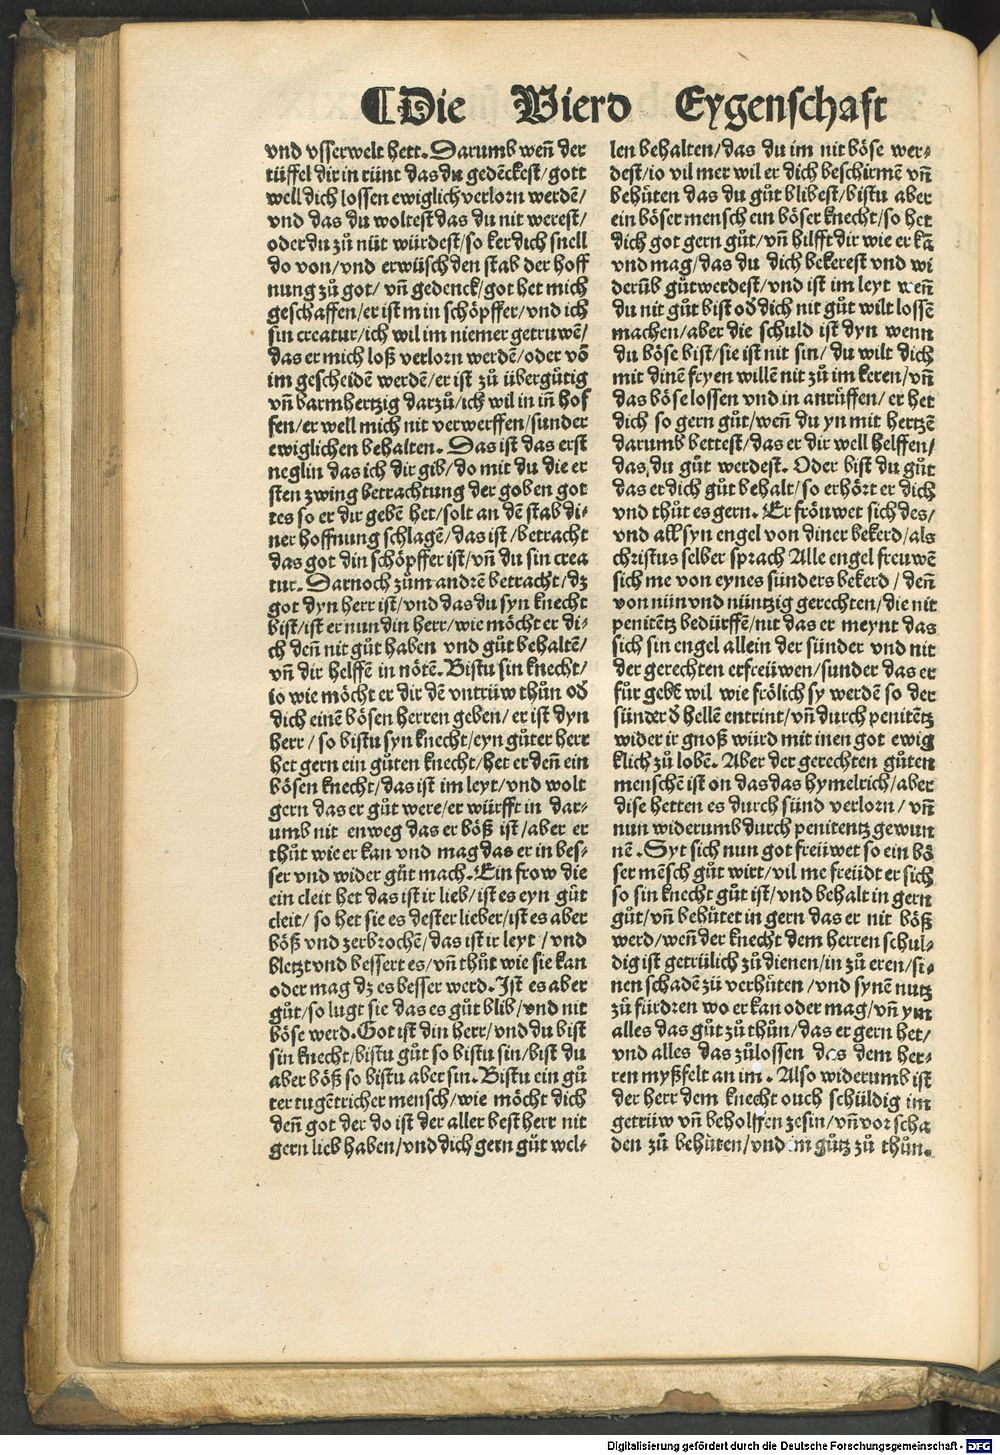 ¶Die Vierd Eygenschaft
vnd vsserwelt hett. Darumb weñ der
tüffel dir in rünt das du gedēckest/gott
well dich lossen ewiglich verlorn werdē/
vnd das du woltest das du nit werest/
oder du zů nüt würdest/so ker dich snell
do von/vnd erwüsch den stab der hoff
nung zů got/ vñ gedenck/got het mich
geschaffen/er ist min schöpffer/vnd ich
sin creatur/ich wil im niemer getruwē/
das er mich loß verlorn werdē/oder vō
im gescheidē werdē/er ist zů übergütig
vñ barmhertzig darzů/ich wil in iñ hof
fen/er well mich nit verwerffen/sunder
ewiglichen behalten. Das ist das erst
neglin das ich dir gib/do mit du die er
sten zwing betrachtung der goben got
tes so er dir gebē het/solt an dē stab di-
ner hoffnung schlagē/das ist/betracht
das got din schöpffer ist/vñ du sin crea
tur. Darnoch zům andrē betracht/dz
got dyn herr ist/vnd das du syn knecht
bist/ist er nun din herr/wie möcht er di-
ch deñ nit gůt haben vnd gůt behaltē/
vñ dir helffē in nötē. Bistu sin knecht/
io wie möcht er dir dē vntrüw thůn od
dich einē bösen herren geben/er ist dyn
herr/so bistu syn knecht/eyn gůter herr
het gern ein gůten knecht/het er deñ ein
bösen knecht/das ist im leyt/vnd wolt
gern das er gůt were/er würfft in dar-
umb nit enweg das er böß ist/aber er
thůt wie er kan vnd mag das er in bes-
ser vnd wider gůt mach. Ein frow die
ein cleit het das ist ir lieb/ist es eyn gůt
cleit/so het sie es dester lieber/ist es aber
böß vnd zerbrochē/das ist ir leyt/vnd
bletzt vnd bessert es/vñ thůt wie sie kan
oder mag dz es besser werd. Ist es aber
gůt/so lugt sie das es gůt blib/vnd nit
böse werd. Got ist din herr/vnd du bist
sin knecht/bistu gůt so bistu sin/bist du
aber böß so bistu aber sin. Bistu ein gů
ter tugētricher mensch/wie möcht dich
deñ got der do ist der aller best herr nit
gern lieb haben/vnd dich gern gůt wel-
len behalten/das du im nit böse wer-
dest/io vil mer wil er dich beschirmē vñ
behüten das du gůt blibest/bistu aber
ein böser mensch ein böser knecht/so het
dich got gern gůt/vñ hilfft dir wie er kā
vnd mag/das du dich bekerest vnd wi
derüb gůt werdest/vnd ist im leyt weñ
du nit gůt bist od dich nit gůt wilt lossē
machen/aber die schuld ist dyn wenn
du böse bist/sie ist nit sin/du wilt dich
mit dinē freyen willē nit zů im keren/vñ
das böse lossen vnd in anrüffen/er het
dich so gern gůt/weñ du yn mit hertzē
darumb bettest/das er dir well helffen/
das du gůt werdest. Oder bist du gůt
das er dich gůt behalt/so erhört er dich
vnd thůt es gern. Er fröuwet sich des/
vnd all syn engel von diner bekerd/als
christus selber sprach Alle engel freuwē
sich me von eynes sünders bekerd/deñ
von nün vnd nüntzig gerechten/die nit
penitētz bedürffē/nit das er meynt das
sich sin engel allein der sünder vnd nit
der gerechten erfreüwen/sunder das er
für gebē wil wie frölich sy werdē so der
sünder d hellē entrint/vñ durch penitētz
wider ir gnoß würd mit inen got ewig
klich zů lobē. Aber der gerechten gůten
menschē ist on das das hymelrich/aber
dise hetten es durch sünd verlorn/vñ
nun widerumb durch penitentz gewun
nē. Syt sich nun got freüwet so ein bö
ser mēsch gůt wirt/vil me freüdt er sich
so sin knecht gůt ist/vnd behalt in gern
gůt/vñ behütet in gern das er nit böß
werd/weñ der knecht dem herren schul-
dig ist getrülich zů dienen/in zů eren/si-
nen schadē zů verhüten/vnd synē nutz
zů fürdren wo er kan oder mag/vñ ym
alles das gůt zů thůn/das er gern het/
vnd alles das zů lossen das dem her-
ren myßfelt an im. Also widerumb ist
der herr dem knecht ouch schüldig im
getrüw vñ beholffen ze sin/vñ vor scha
den zů behüten/vnd im gůtz zů thůn.
Digitalisierung gefördert durch die Deutsche Forschungsgemeinschaft - DFG